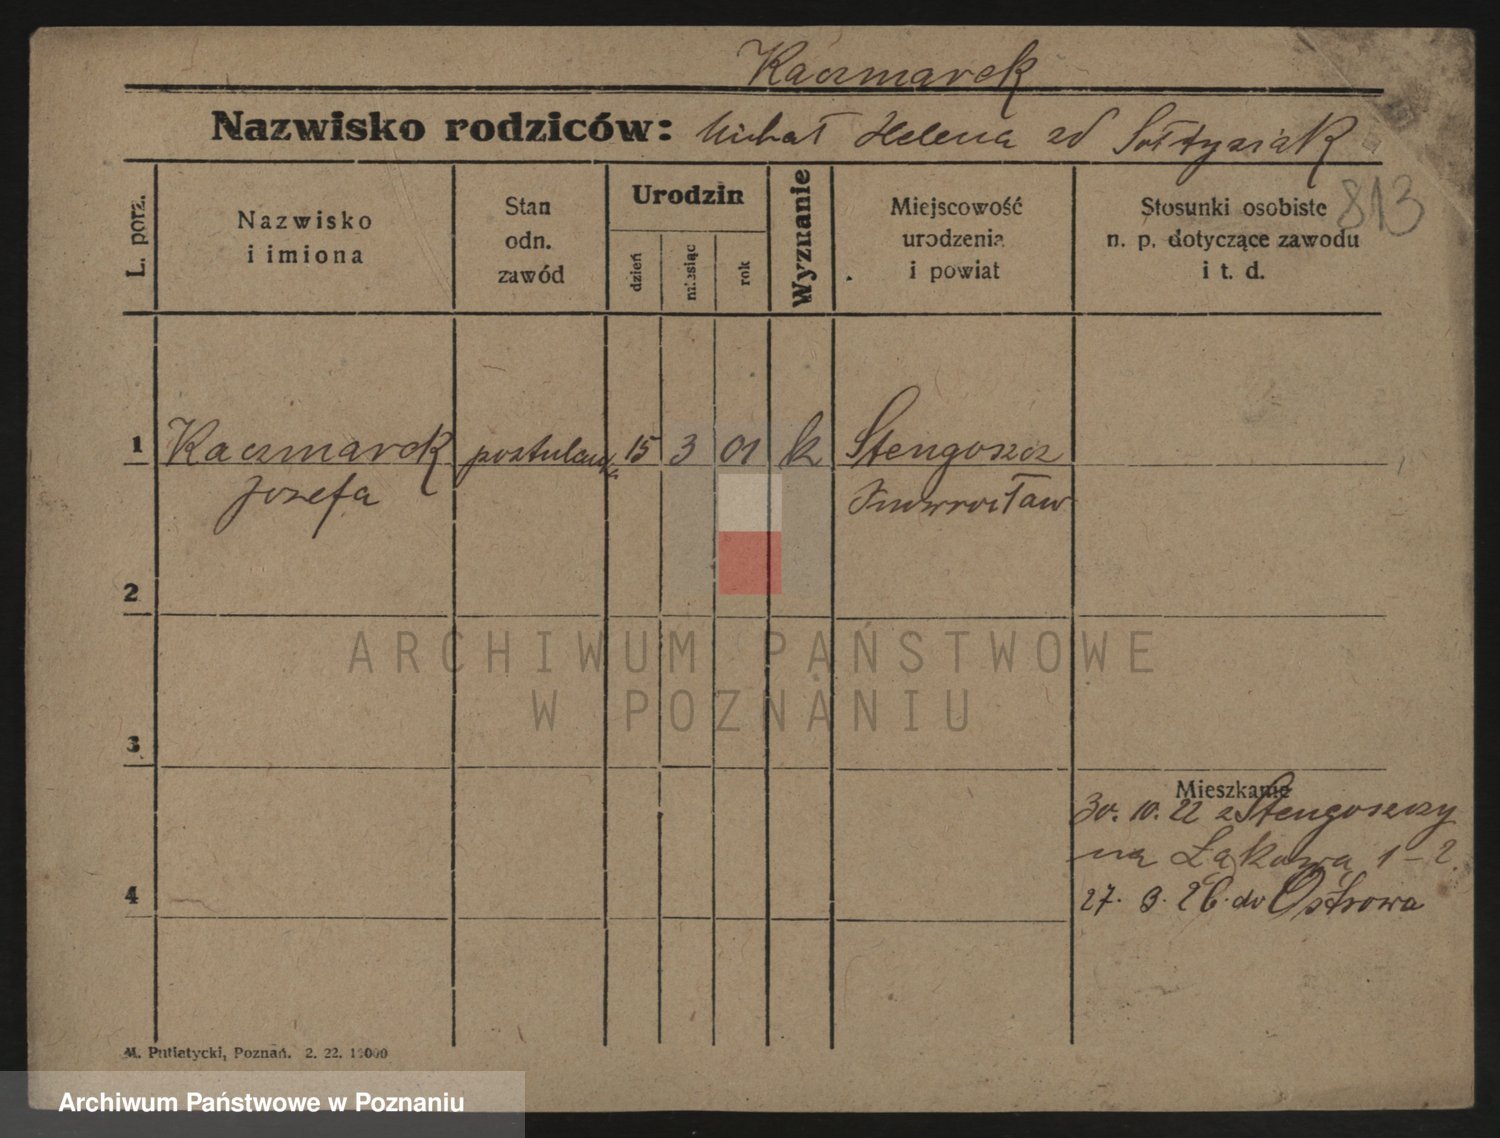 Kaczmarek
Nazwisko rodziców: Michał Helena zd Sołtysiak
L. porz.
Nazwisko
i imiona
Stan
odn.
zawód
Urodzin
dzień
miesiąc
rok
Wyznanie
Miejscowość
urodzenia
i powiat
Stosunki osobiste
n. p. dotyczące zawodu
i t. d.
813
1 Kaczmarek postulantka 15 3 01 k Stengoszcz
Józefa Inowrocław
2
ARCHIWUM PAŃSTWOWE
W POZNANIU
3
Mieszkanie
30. 10. 22 z Stengoszczy
na Łąkową 1-2.
4 27. 9. 26. do Ostrowa
M. Putiatycki, Poznań. 2. 22.
Archiwum Państwowe w Poznaniu